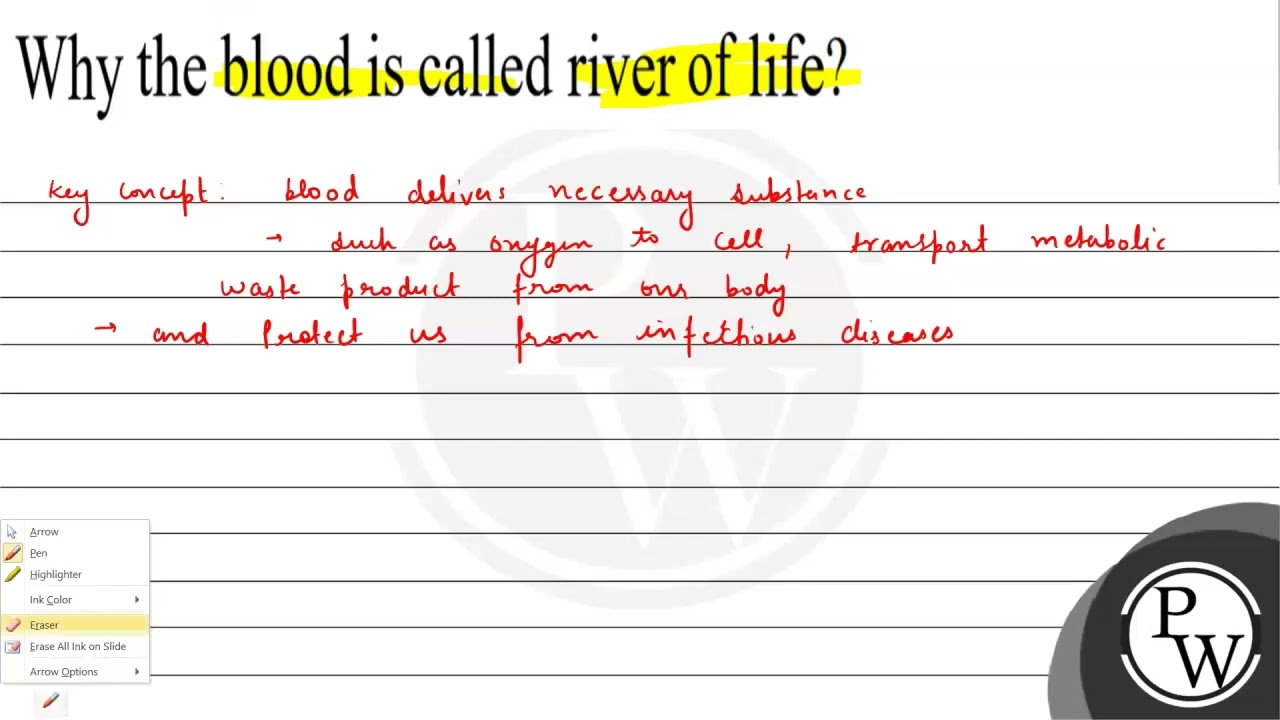 Why the blood is called river of life?
Key concept: blood delivers necessary substance
→ such as oxygen to cell, transport metabolic
waste product from our body
→ and Protect us from infectious diseases
Arrow
Pen
Highlighter
Ink Color
Eraser
Erase All Ink on Slide
Arrow Options
PW
PW